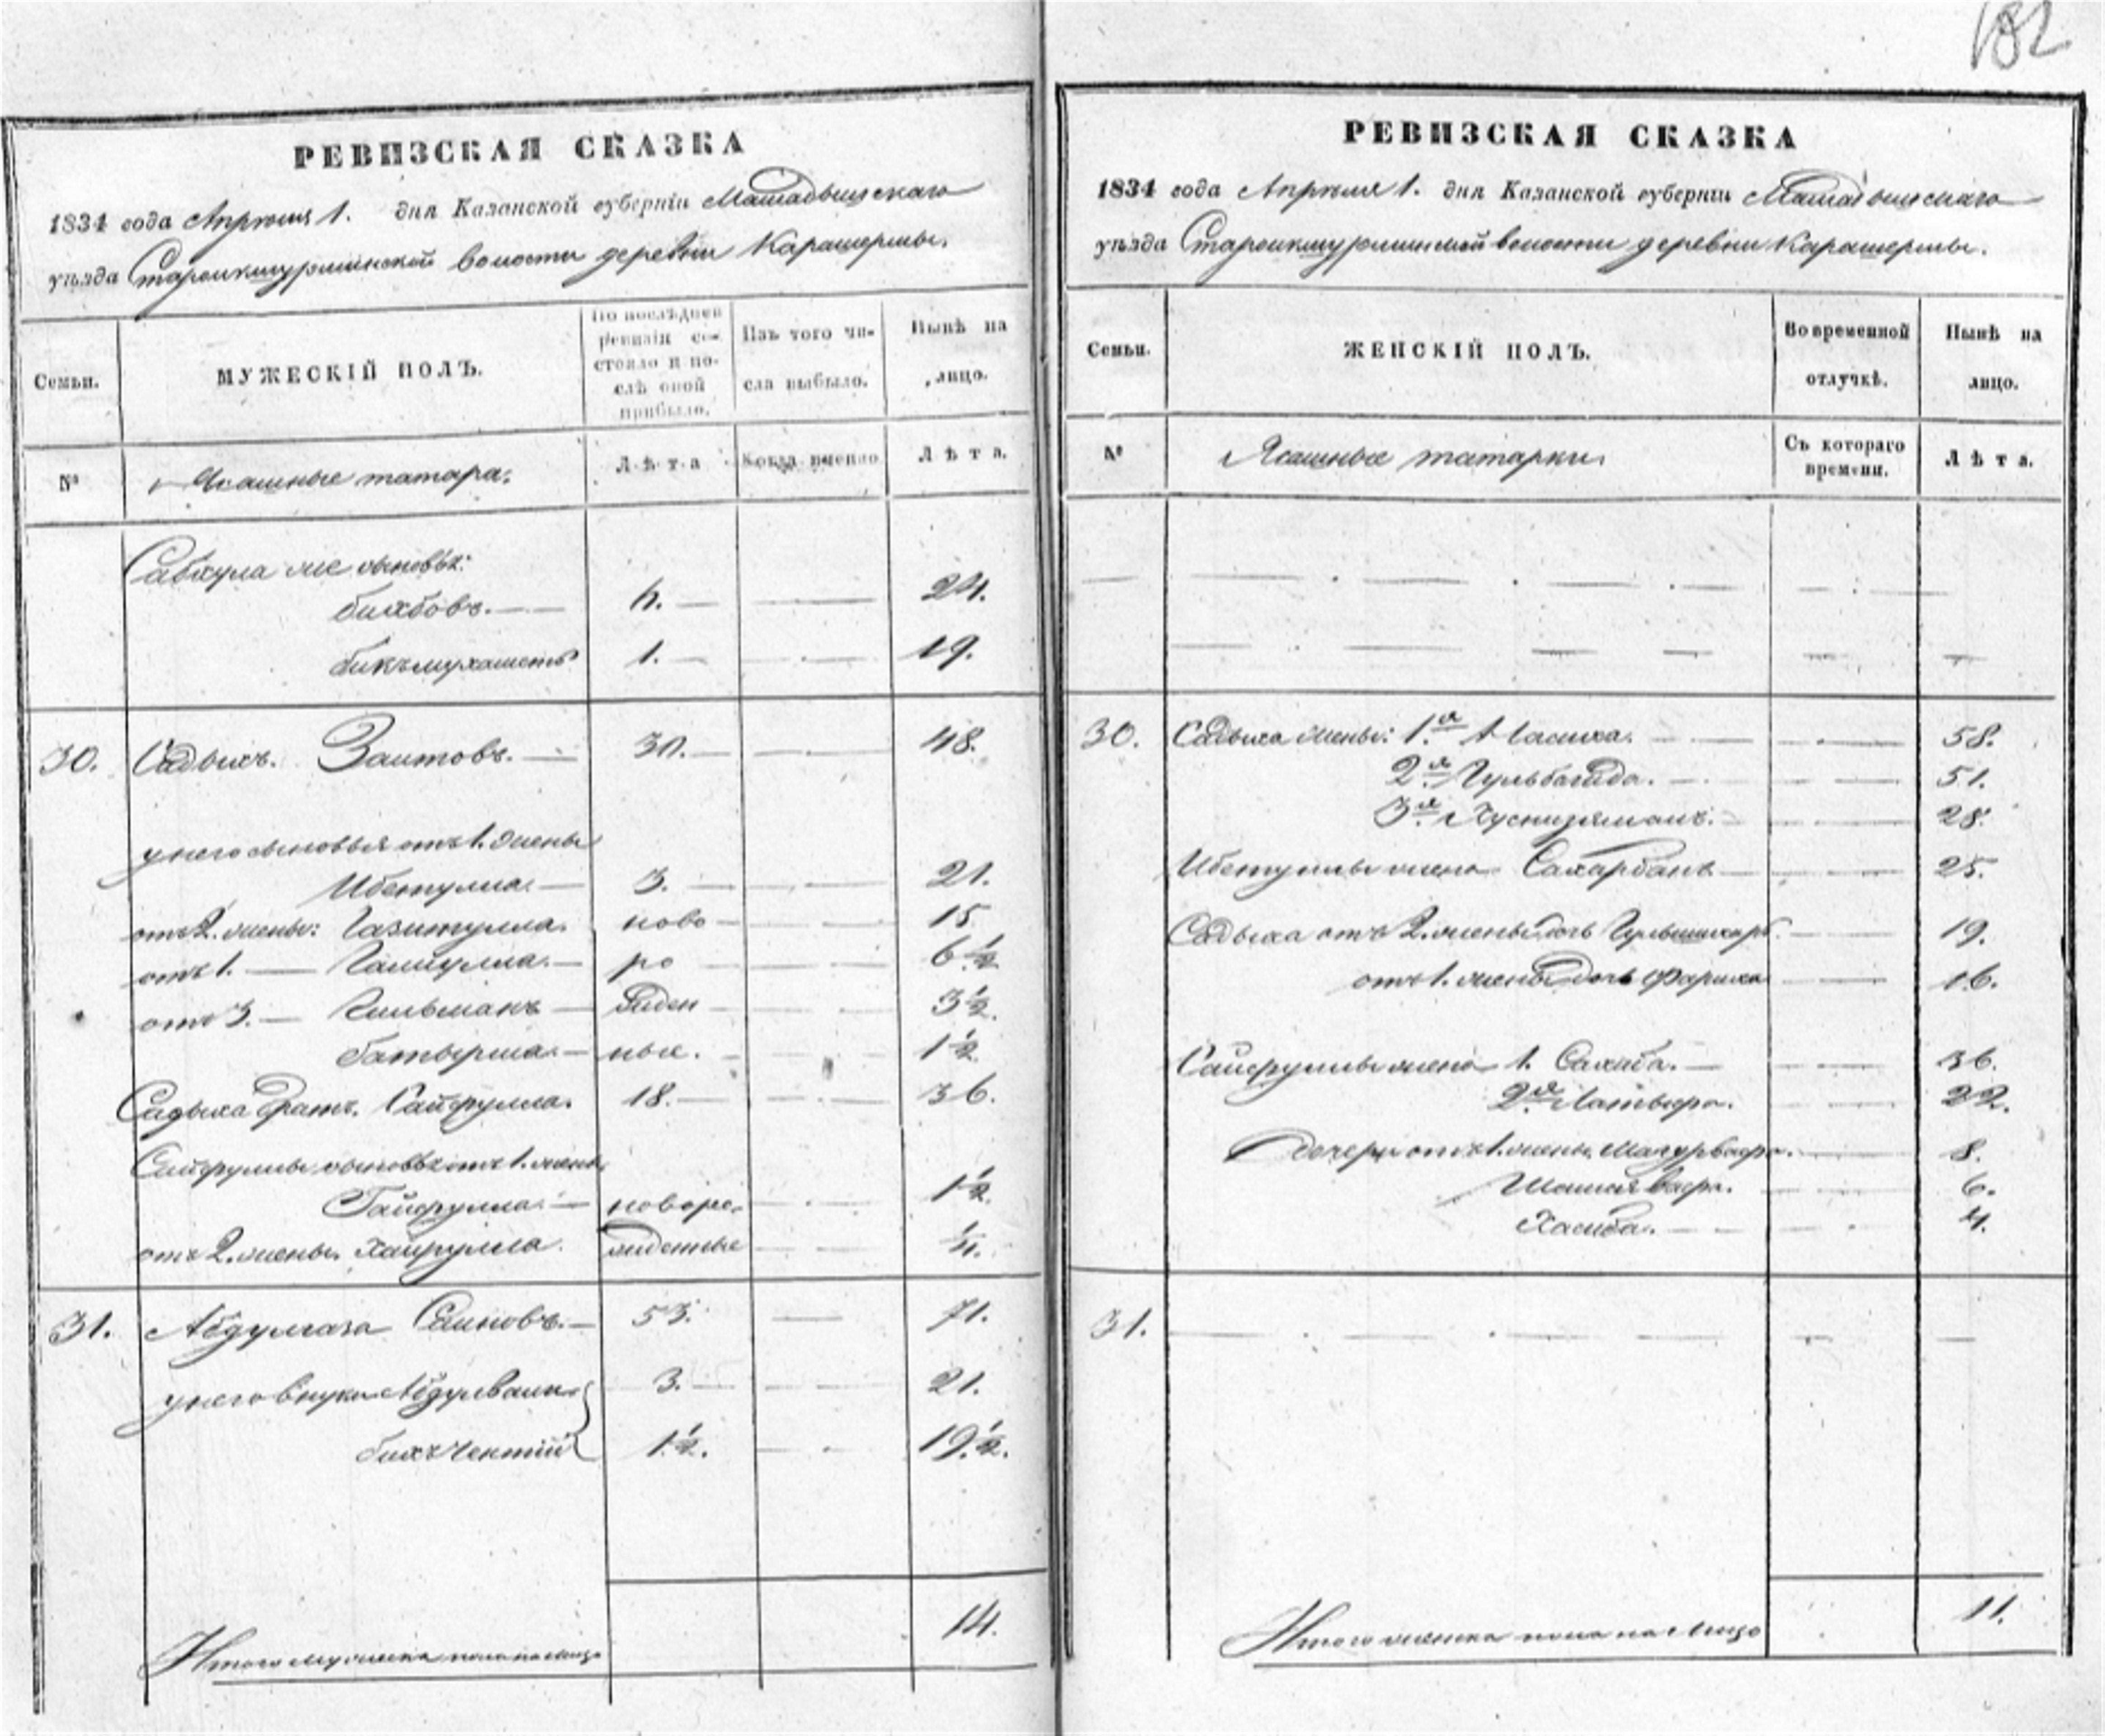 182
РЕВИЗСКАЯ СКАЗКА
1834 года Апреля 1. дня Казанской губерніи Мамадышскаго
уѣзда Староикшурминской волости деревни Карашермы.
Семьи.
МУЖЕСКІЙ ПОЛЪ.
По послѣдней ревизіи состояло и послѣ оной прибыло.
Изъ того числа выбыло.
Нынѣ на лицо.
№
Ясашные татара.
Лѣта
Когда именно
Лѣта.
Сабкула же сыновья:
бикбовъ. 6. 24.
бикъмухаметъ 1. 19.
30. Садыкъ Заитовъ. 30. 48.
у него сыновья отъ 1. жены
Ибетулла. 3. 21.
отъ 2. жены: Газитулла. ново 15
отъ 1. Галиулла. ро 6 ½
отъ 3. Гильманъ жден 3 ½.
батырша. ные. 1 ½
Садыка братъ Сайфулла. 18. 36.
Сайфуллы сыновья отъ 1. жены
Гайфулла. новоро 1 ½
отъ 2. жены. Хайрулла. жденные ¼.
31. Абдулгаза Саиновъ. 53. 71.
у него внуки Абдулвали 3. 21.
бикъчентій 1 ½. 19. ½.
Итого мужеска пола на лицо 14.
РЕВИЗСКАЯ СКАЗКА
1834 года Апреля 1. дня Казанской губерніи Мамадышскаго
уѣзда Староикшурминской волости деревни Карашермы.
Семьи.
ЖЕНСКІЙ ПОЛЪ.
Во временной отлучкѣ.
Нынѣ на лицо.
№
Ясашные татарки.
Съ котораго времени.
Лѣта.
30. Садыка жены: 1.я Масиха. 58.
2.я Гульбагида. 51.
3.я Хуснизямалъ. 28.
Ибетуллы жена Сахарбанъ 25.
Садыка отъ 2. жены дочь 19.
отъ 1. жены дочь Фариха 16.
Сайфуллы жена 1. Сахиба. 36.
2.я 22.
дочери отъ 1. жены 8.
6.
Хасиба. 4.
31.
Итого женска пола на лицо 11.